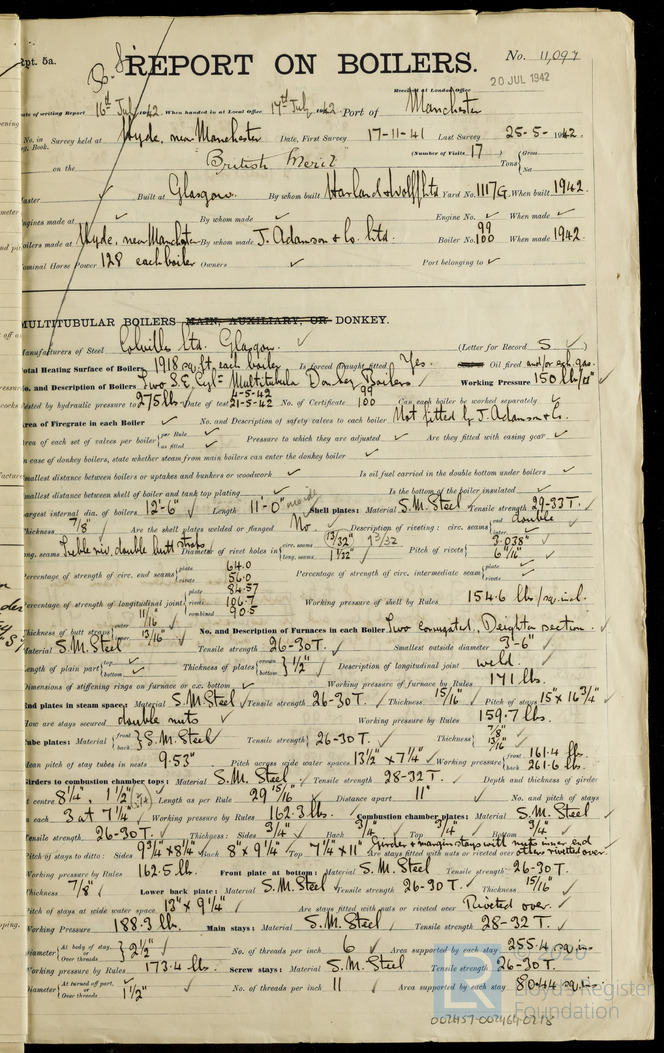 Rpt. 5a.
REPORT ON BOILERS.
No. 11,097
20 JUL 1942
Received at London Office
Date of writing Report 16th July 1942. When handed in at Local Office 17th July 1942 Port of Manchester
No. in Survey held at Hyde, near Manchester Date, First Survey 17-11-41 Last Survey 25-5-1942.
Reg. Book. (Number of Visits 17)
on the "British Merit" Tons { Gross Net
Master ✓ Built at Glasgow. By whom built Harland & Wolff Ltd Yard No. 1117G. When built 1942.
Engines made at ✓ By whom made ✓ Engine No. ✓ When made ✓
Boilers made at Hyde, near Manchester By whom made J. Adamson & Co. Ltd. Boiler No. 99 100 When made 1942
Nominal Horse Power 128 each boiler Owners ✓ Port belonging to ✓
MULTITUBULAR BOILERS MAIN, AUXILIARY, OR DONKEY.
Manufacturers of Steel Colvilles Ltd. Glasgow. ✓ (Letter for Record S ✓)
Total Heating Surface of Boilers 1918 sq. ft. each boiler Is forced draught fitted Yes. Oil fired and/or exh. gas.
No. and Description of Boilers Two S.E. Cyl. Multitubular Donkey Boilers ✓ Working Pressure 150 lb/□"
Tested by hydraulic pressure to 275 lb Date of test 4-5-42 21-5-42 No. of Certificate 99 100 Can each boiler be worked separately ✓
Area of Firegrate in each Boiler ✓ No. and Description of safety valves to each boiler Not fitted by J. Adamson & Co.
Area of each set of valves per boiler { per Rule as fitted ✓ Pressure to which they are adjusted ✓ Are they fitted with easing gear ✓
In case of donkey boilers, state whether steam from main boilers can enter the donkey boiler ✓
Smallest distance between boilers or uptakes and bunkers or woodwork ✓ Is oil fuel carried in the double bottom under boilers ✓
Smallest distance between shell of boiler and tank top plating ✓ Is the bottom of the boiler insulated ✓
Largest internal dia. of boilers 12'-6" ✓ Length 11'-0" Shell plates: Material S.M. Steel Tensile strength 29-33 T. ✓
Thickness 7/8" ✓ Are the shell plates welded or flanged No. Description of riveting: circ. seams { end double inter. ✓
Long. seams Treble riv. double butt straps Diameter of rivet holes in { circ. seams 1 3/32" long. seams 1 1/32" ✓ Pitch of rivets { 3.038" 6 11/16" ✓
Percentage of strength of circ. end seams { plate 64.0 rivets 56.0 Percentage of strength of circ. intermediate seam { plate rivets ✓
Percentage of strength of longitudinal joint { plate 84.57 rivets 106.7 combined 90.5 Working pressure of shell by Rules 154.6 lbs/sq. in.
Thickness of butt straps { outer 11/16" inner 13/16" ✓ No. and Description of Furnaces in each Boiler Two corrugated, Deighton section. ✓
Material S.M. Steel Tensile strength 26-30 T. ✓ Smallest outside diameter 3'-6" ✓
Length of plain part { top bottom ✓ Thickness of plates { crown bottom } 1/2" ✓ Description of longitudinal joint weld. ✓
Dimensions of stiffening rings on furnace or c.c. bottom ✓ Working pressure of furnace by Rules 171 lbs.
End plates in steam space: Material S.M. Steel ✓ Tensile strength 26-30 T. ✓ Thickness 15/16" ✓ Pitch of stays 15" x 16 3/4" ✓
How are stays secured double nuts ✓ Working pressure by Rules 159.7 lbs.
Tube plates: Material { front back } S.M. Steel ✓ Tensile strength { 26-30 T. ✓ Thickness { 7/8" 13/16" ✓
Mean pitch of stay tubes in nests 9.53" Pitch across wide water spaces 13 1/2" x 7 1/4" ✓ Working pressure { front 161.4 lbs. back 261.6 lbs.
Girders to combustion chamber tops: Material S.M. Steel ✓ Tensile strength 28-32 T. ✓ Depth and thickness of girder
at centre 8 1/4", 1 1/2" ✓ Length as per Rule 29 15/16" ✓ Distance apart 11" No. and pitch of stays
in each 3 at 7 1/4" ✓ Working pressure by Rules 162.3 lbs. Combustion chamber plates: Material S.M. Steel ✓
Tensile strength 26-30 T. ✓ Thickness: Sides 3/4" ✓ Back 3/4" ✓ Top 3/4" ✓ Bottom 3/4" ✓
Pitch of stays to ditto: Sides 9 3/4" x 8 1/4" ✓ Back 8" x 9 1/4" ✓ Top 7 1/4" x 11" Are stays fitted with nuts or riveted over Girder & margin stays with nuts inner end others rivetted over
Working pressure by Rules 162.5 lbs. Front plate at bottom: Material S.M. Steel ✓ Tensile strength 26-30 T.
Thickness 7/8" ✓ Lower back plate: Material S.M. Steel ✓ Tensile strength 26-30 T. ✓ Thickness 15/16" ✓
Pitch of stays at wide water space 13" x 9 1/4" ✓ Are stays fitted with nuts or riveted over Riveted over. ✓
Working Pressure 188.3 lbs. Main stays: Material S.M. Steel ✓ Tensile strength 28-32 T. ✓
Diameter { At body of stay, or Over threads } 2 1/2" ✓ No. of threads per inch 6 ✓ Area supported by each stay 255.4 sq. in.
Working pressure by Rules 173.4 lbs. Screw stays: Material S.M. Steel ✓ Tensile strength 26-30 T.
Diameter { At turned off part, or Over threads 1 1/2" ✓ No. of threads per inch 11 ✓ Area supported by each stay 80.44 sq. in.
© 2020
LR Lloyd's Register
Foundation
002457-002464-0218